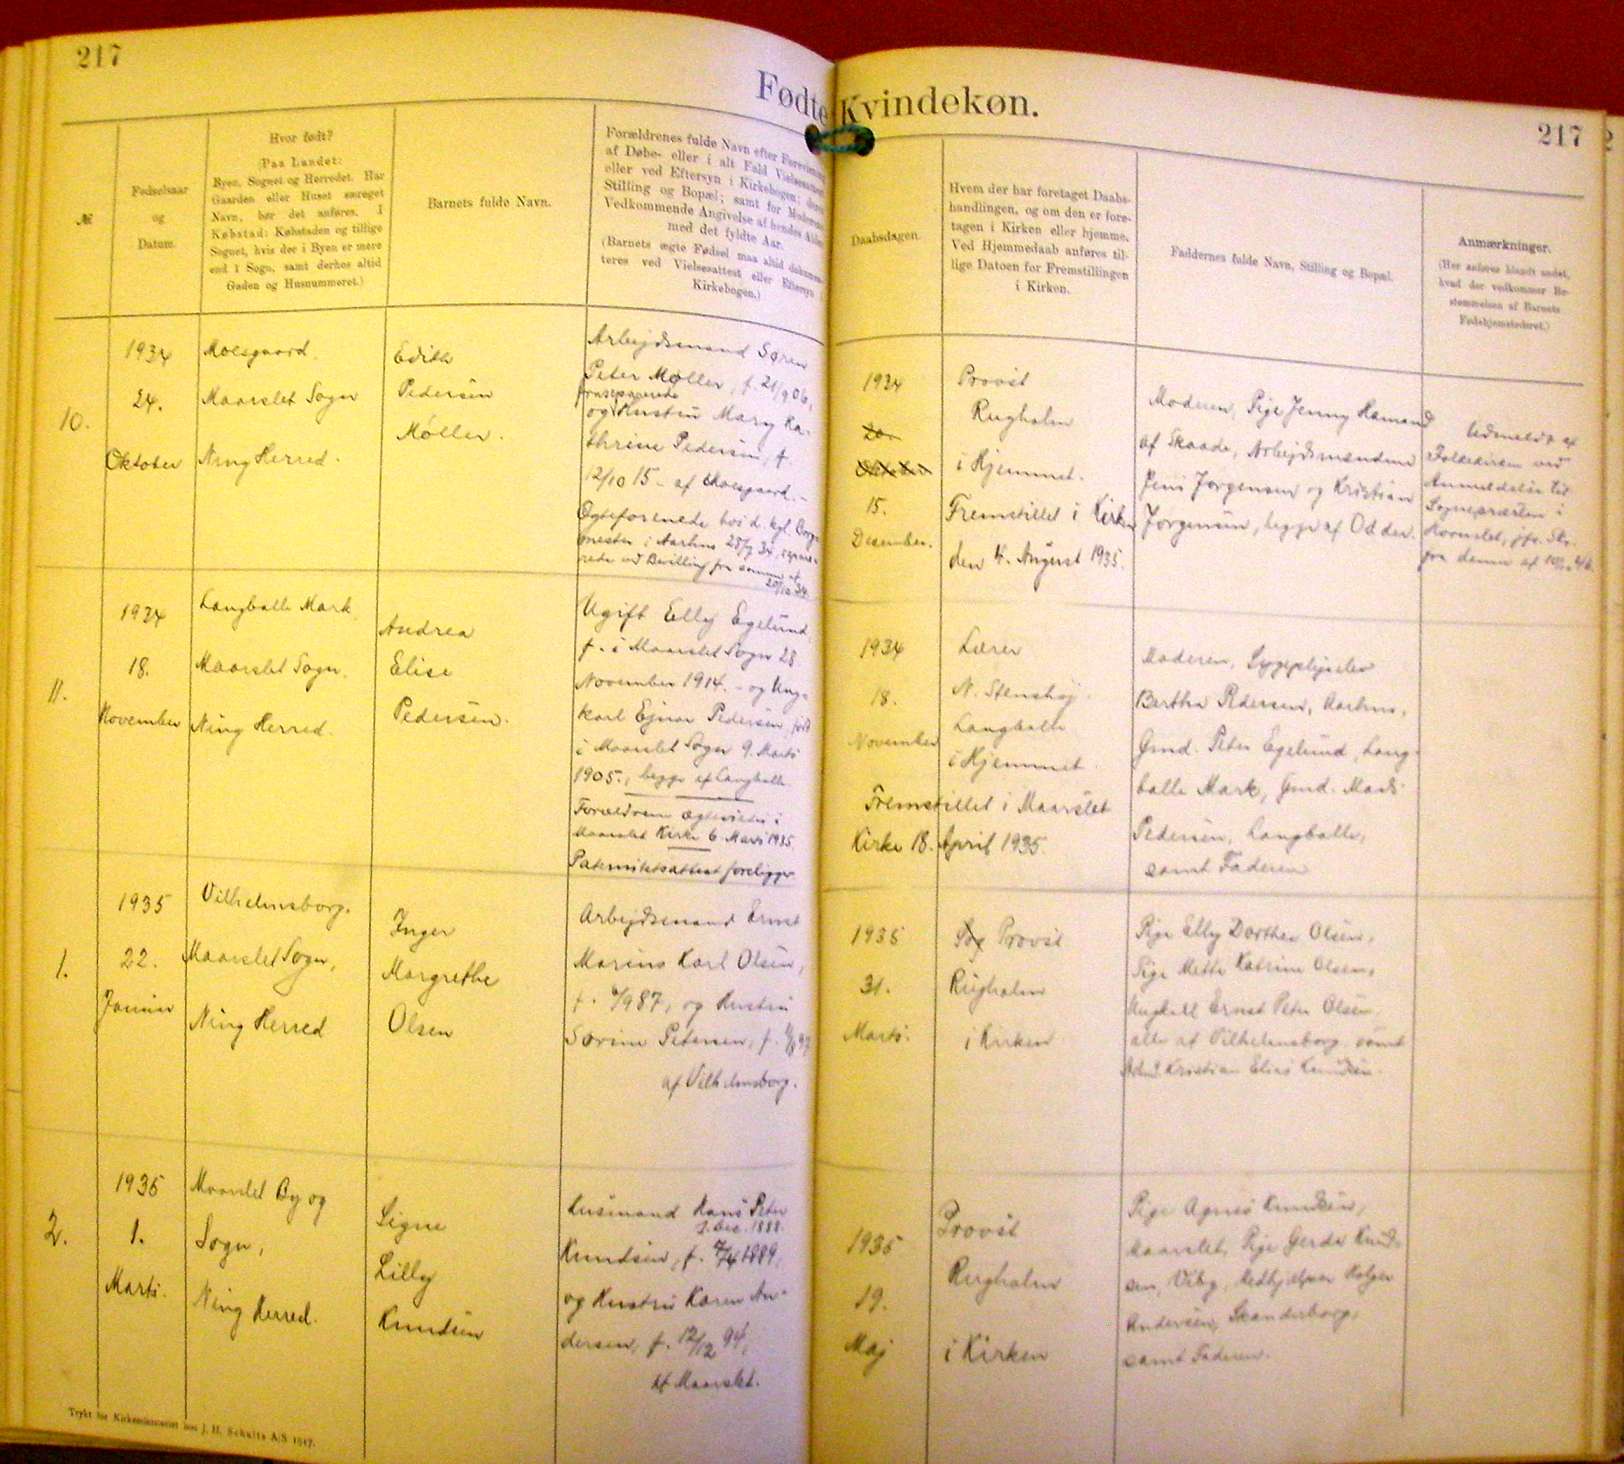 217
Fødte Kvindekøn.
217
№
Fødselsaar
og
Datum.
Hvor født?
(Paa Landet:
Byen, Sognet og Herredet. Har
Gaarden eller Huset særeget
Navn, bør det anføres. I
Købstad: Købstaden og tillige
Sognet, hvis der i Byen er mere
end 1 Sogn, samt derhos altid
Gaden og Husnummeret.)
Barnets fulde Navn.
Forældrenes fulde Navn efter
af Døbe- eller i alt Fald
eller ved Eftersyn i Kirkebogen;
Stilling og Bopæl; samt for
Vedkommende Angivelse af hendes
med det fyldte Aar.
(Barnets ægte Fødsel maa altid
teres ved Vielsesattest eller Eftersyn
Kirkebogen.)
Daabsdagen.
Hvem der har foretaget Daabs-
handlingen, og om den er fore-
tagen i Kirken eller hjemme.
Ved Hjemmedaab anføres til-
lige Datoen for Fremstillingen
i Kirken.
Faddernes fulde Navn, Stilling og Bopæl.
Anmærkninger.
(Her anføres blandt andet,
hvad der vedkommer Be-
stemmelsen af Barnets
Fødehjemstedsret.)
10.
1934
24.
Oktober
Moesgaard.
Maarslet Sogn
Ning Herred.
Edith
Pedersen
Møller.
Arbejdsmand Søren
Peter Møller, f. 21/9 06,
fraseparerede
og Hustru Mary Ka-
thrine Pedersen, f.
12/10 15 - af Moesgaard. -
Ægteforenede hos d. kgl. Borg-
mester i Aarhus 28/7 34, separe-
rede ved Bevilling fra samme af
1934
15.
Desember.
Provst
Rugholm
i Hjemmet.
Fremstillet i Kirken
den 4. August 1935.
Moderen, Pige Jenny Hamand
af Skaade, Arbejdsmændene
Jens Jørgensen og Kristian
Jørgensen, begge af Odder.
Udmeldt af
Folkekirken ved
Anmeldelse til
Sognepræsten i
11.
1934
18.
November
Langballe Mark
Maarslet Sogn.
Ning Herred.
Andrea
Elise
Pedersen.
Ugift Elly Egelund,
f. i Maarslet Sogn 28
November 1914. - og Ung-
karl Ejnar Pedersen, født
i Maarslet Sogn 9. Marts
1905., begge af Langballe.
Forældrene ægteviede i
Maarslet Kirke 6. Marts 1935.
Paternitetsattest foreligger.
1934
18.
November
Lærer
N. Stenshøj.
Langballe
i Hjemmet.
Fremstillet i Maarslet
Kirke 18. April 1935.
Moderen, Sygeplejeelev
Bertha Pedersen, Aarhus,
Gmd. Peter Egelund, Lang-
balle Mark, Gmd. Mads
Pedersen, Langballe,
samt Faderen
1.
1935
22.
Januar
Vilhelmsborg.
Maarslet Sogn,
Ning Herred
Inger
Margrethe
Olsen
Arbejdsmand Ernst
Marius Karl Olsen,
og Hustru
Sørine Petersen, f.
af Vilhelmsborg.
1935
31.
Marts.
Provst
Rugholm
i Kirken
Pige Elly Dorthea Olsen,
Pige Mette Katrine Olsen,
Ungkarl Ernst Peter Olsen,
alle af Vilhelmsborg, samt
Kristian Elias Knudsen.
2.
1935
1.
Marts.
Maarslet By og
Sogn,
Ning Herred.
Signe
Lilly
Knudsen
Husmand Hans Peter
Knudsen, f. 7/4 1889,
og Hustru Karen An-
dersen, f. 12/12 94,
af Maarslet.
1935
19.
Maj
Provst
Rugholm
i Kirken
Pige Agnes Knudsen,
Maarslet, Pige Gerda Knud-
sen, Viby, Medhjælper Holger
Andersen, Skanderborg,
samt Faderen.
Trykt for Kirkeministeriet hos J. H. Schultz A/S 1917.